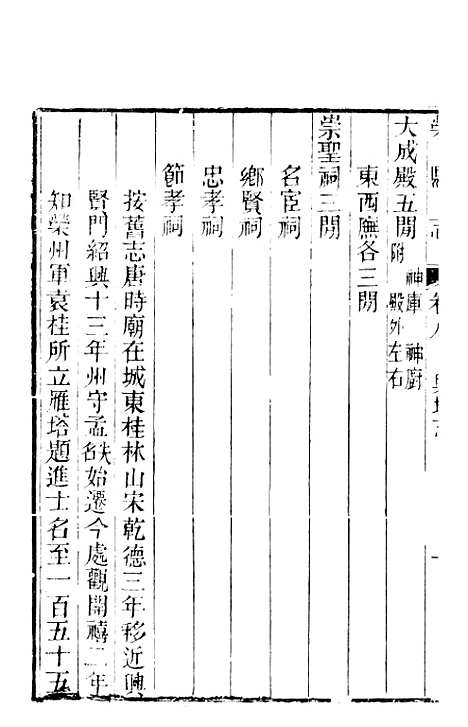 大成殿五間附神庫 神廚殿外左右
東西廡各三間
崇聖祠三間
名宦祠
鄉賢祠
忠孝祠
節孝祠
按舊志唐時廟在城東桂林山宋乾德三年移近興
賢門紹興十三年州守孟名失始遷今處觀開禧二年
知榮州軍袁桂所立雁塔題進士名至一百五十五